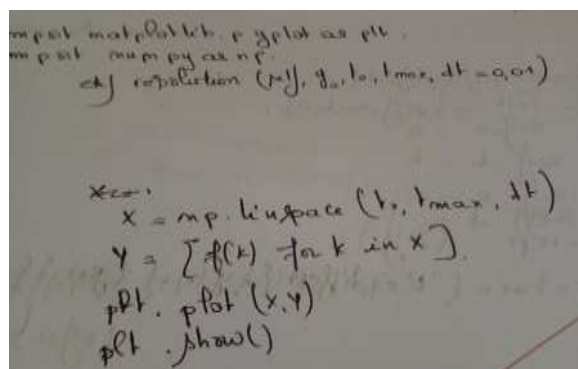 mport matplotlib.pyplot as plt.
mport numpy as np.
def resolution (, y₀, t₀, tmax, dt = 0,01)
X = np.linspace (t₀, tmax, dt)
Y = [f(k) for k in X]
plt.plot (X,Y)
plt.show()